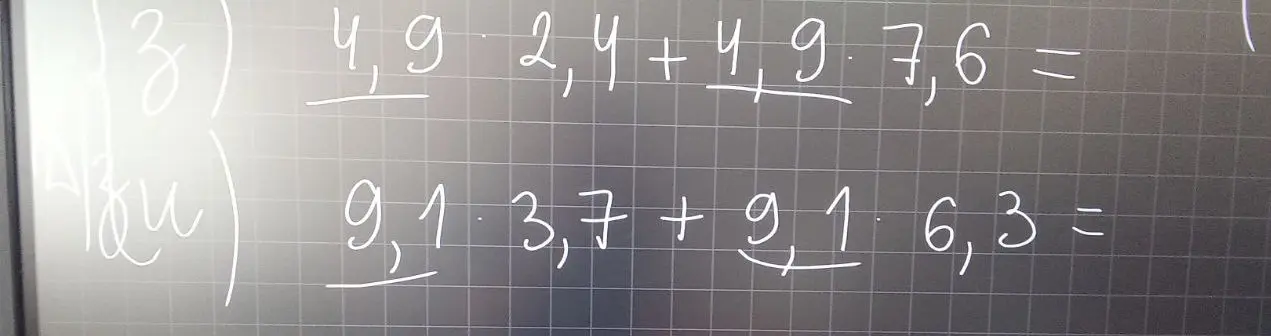 з) 4,9 · 2,4 + 4,9 · 7,6 =
и) 9,1 · 3,7 + 9,1 · 6,3 =